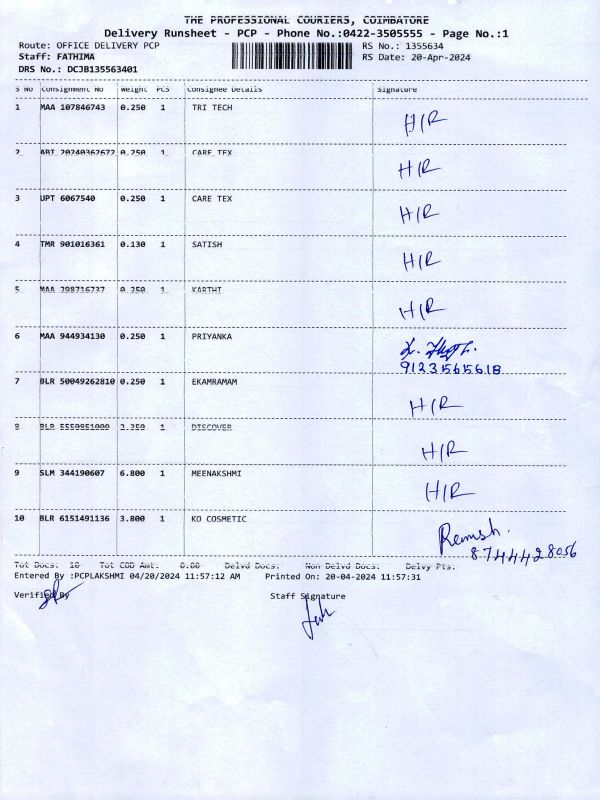 THE PROFESSIONAL COURIERS, COIMBATORE
Delivery Runsheet - PCP - Phone No.:0422-3505555 - Page No.:1
Route: OFFICE DELIVERY PCP RS No.: 1355634
Staff: FATHIMA RS Date: 20-Apr-2024
DRS No.: DCJB135563401
S No Consignment No Weight PCS Consignee Details Signature
1 MAA 107846743 0.250 1 TRI TECH H/R
2 ABT 20240362672 0.250 1 CARE TEX H/R
3 UPT 6067540 0.250 1 CARE TEX H/R
4 TMR 901016361 0.130 1 SATISH H/R
5 MAA 398716737 0.250 1 KARTHI H/R
6 MAA 944934130 0.250 1 PRIYANKA
9123565618
7 BLR 50049262810 0.250 1 EKAMRAMAM H/R
8 BLR 1 DISCOVER H/R
9 SLM 344190607 6.800 1 MEENAKSHMI H/R
10 BLR 6151491136 3.800 1 KO COSMETIC Ramsh.
8744428056
Tot Docs: 10 Tot COD Amt: 0.00 Delvd Docs: Non Delvd Docs: Delvy Pts:
Entered By :PCPLAKSHMI 04/20/2024 11:57:12 AM Printed On: 20-04-2024 11:57:31
Verified By Staff Signature